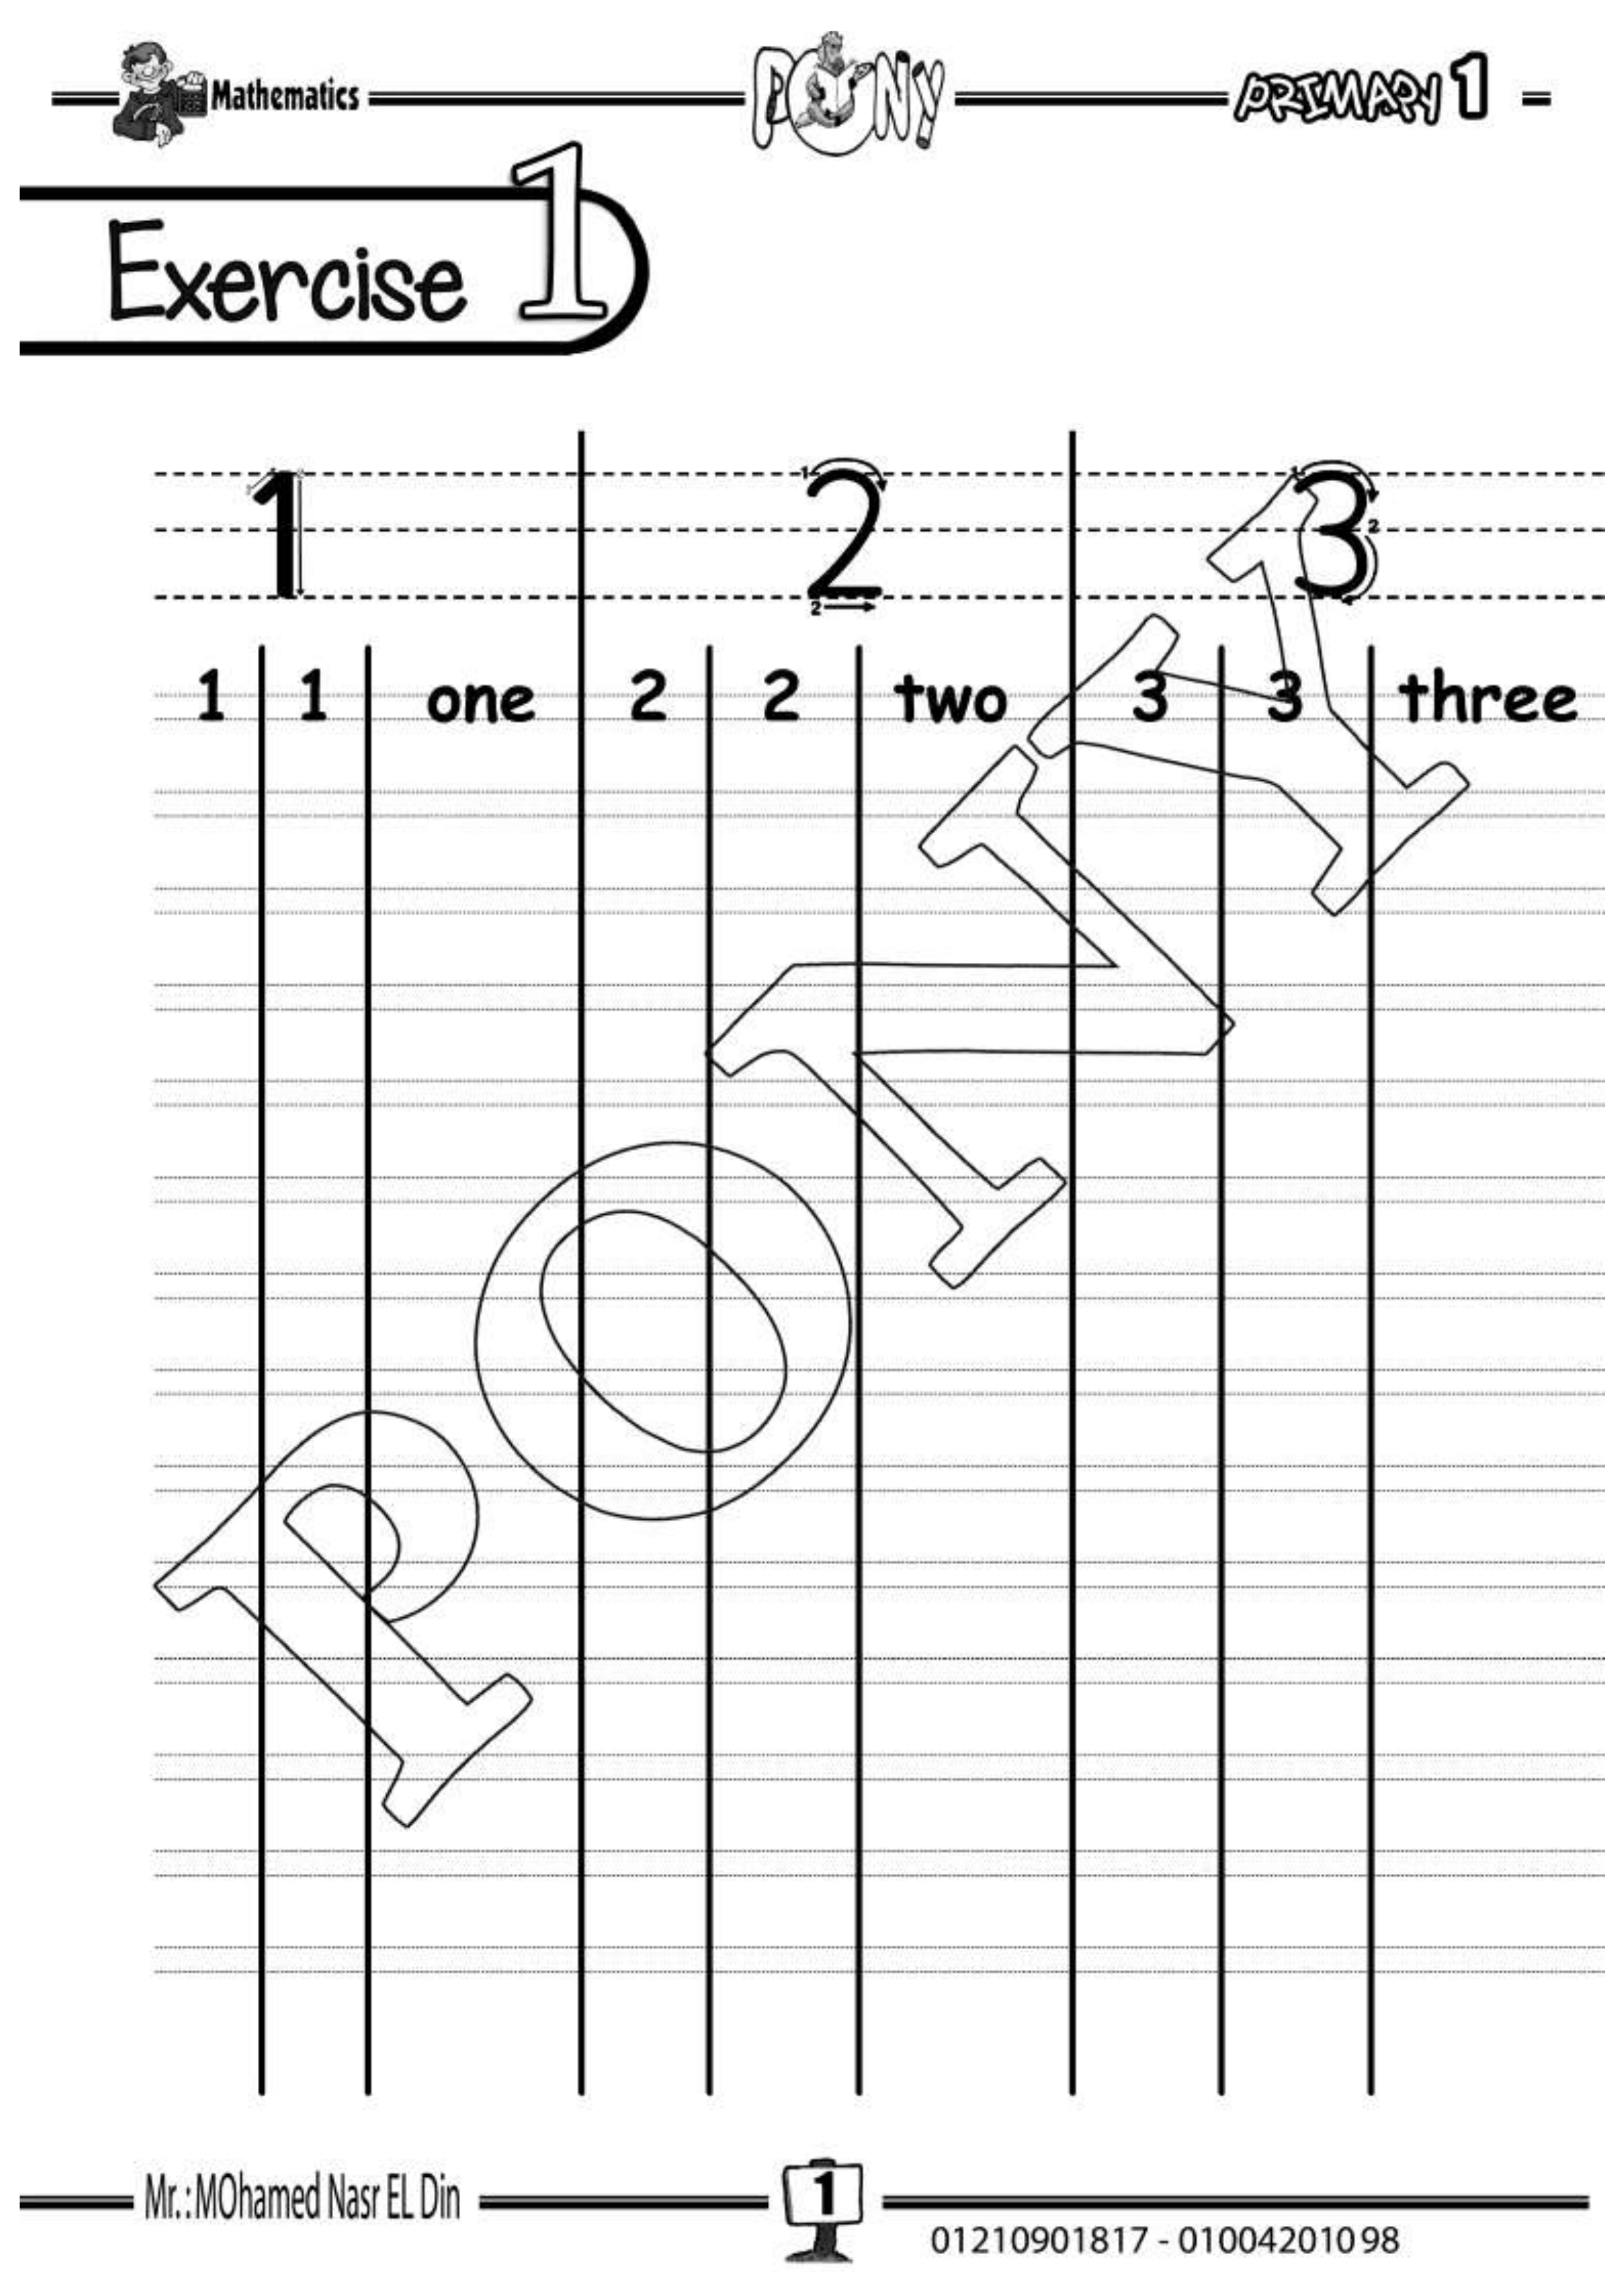 Mathematics PONY PRIMARY 1
Exercise 1
1 2 3
1 1 one 2 2 two 3 3 three
PONY
Mr.:MOhamed Nasr EL Din 1
01210901817 - 01004201098